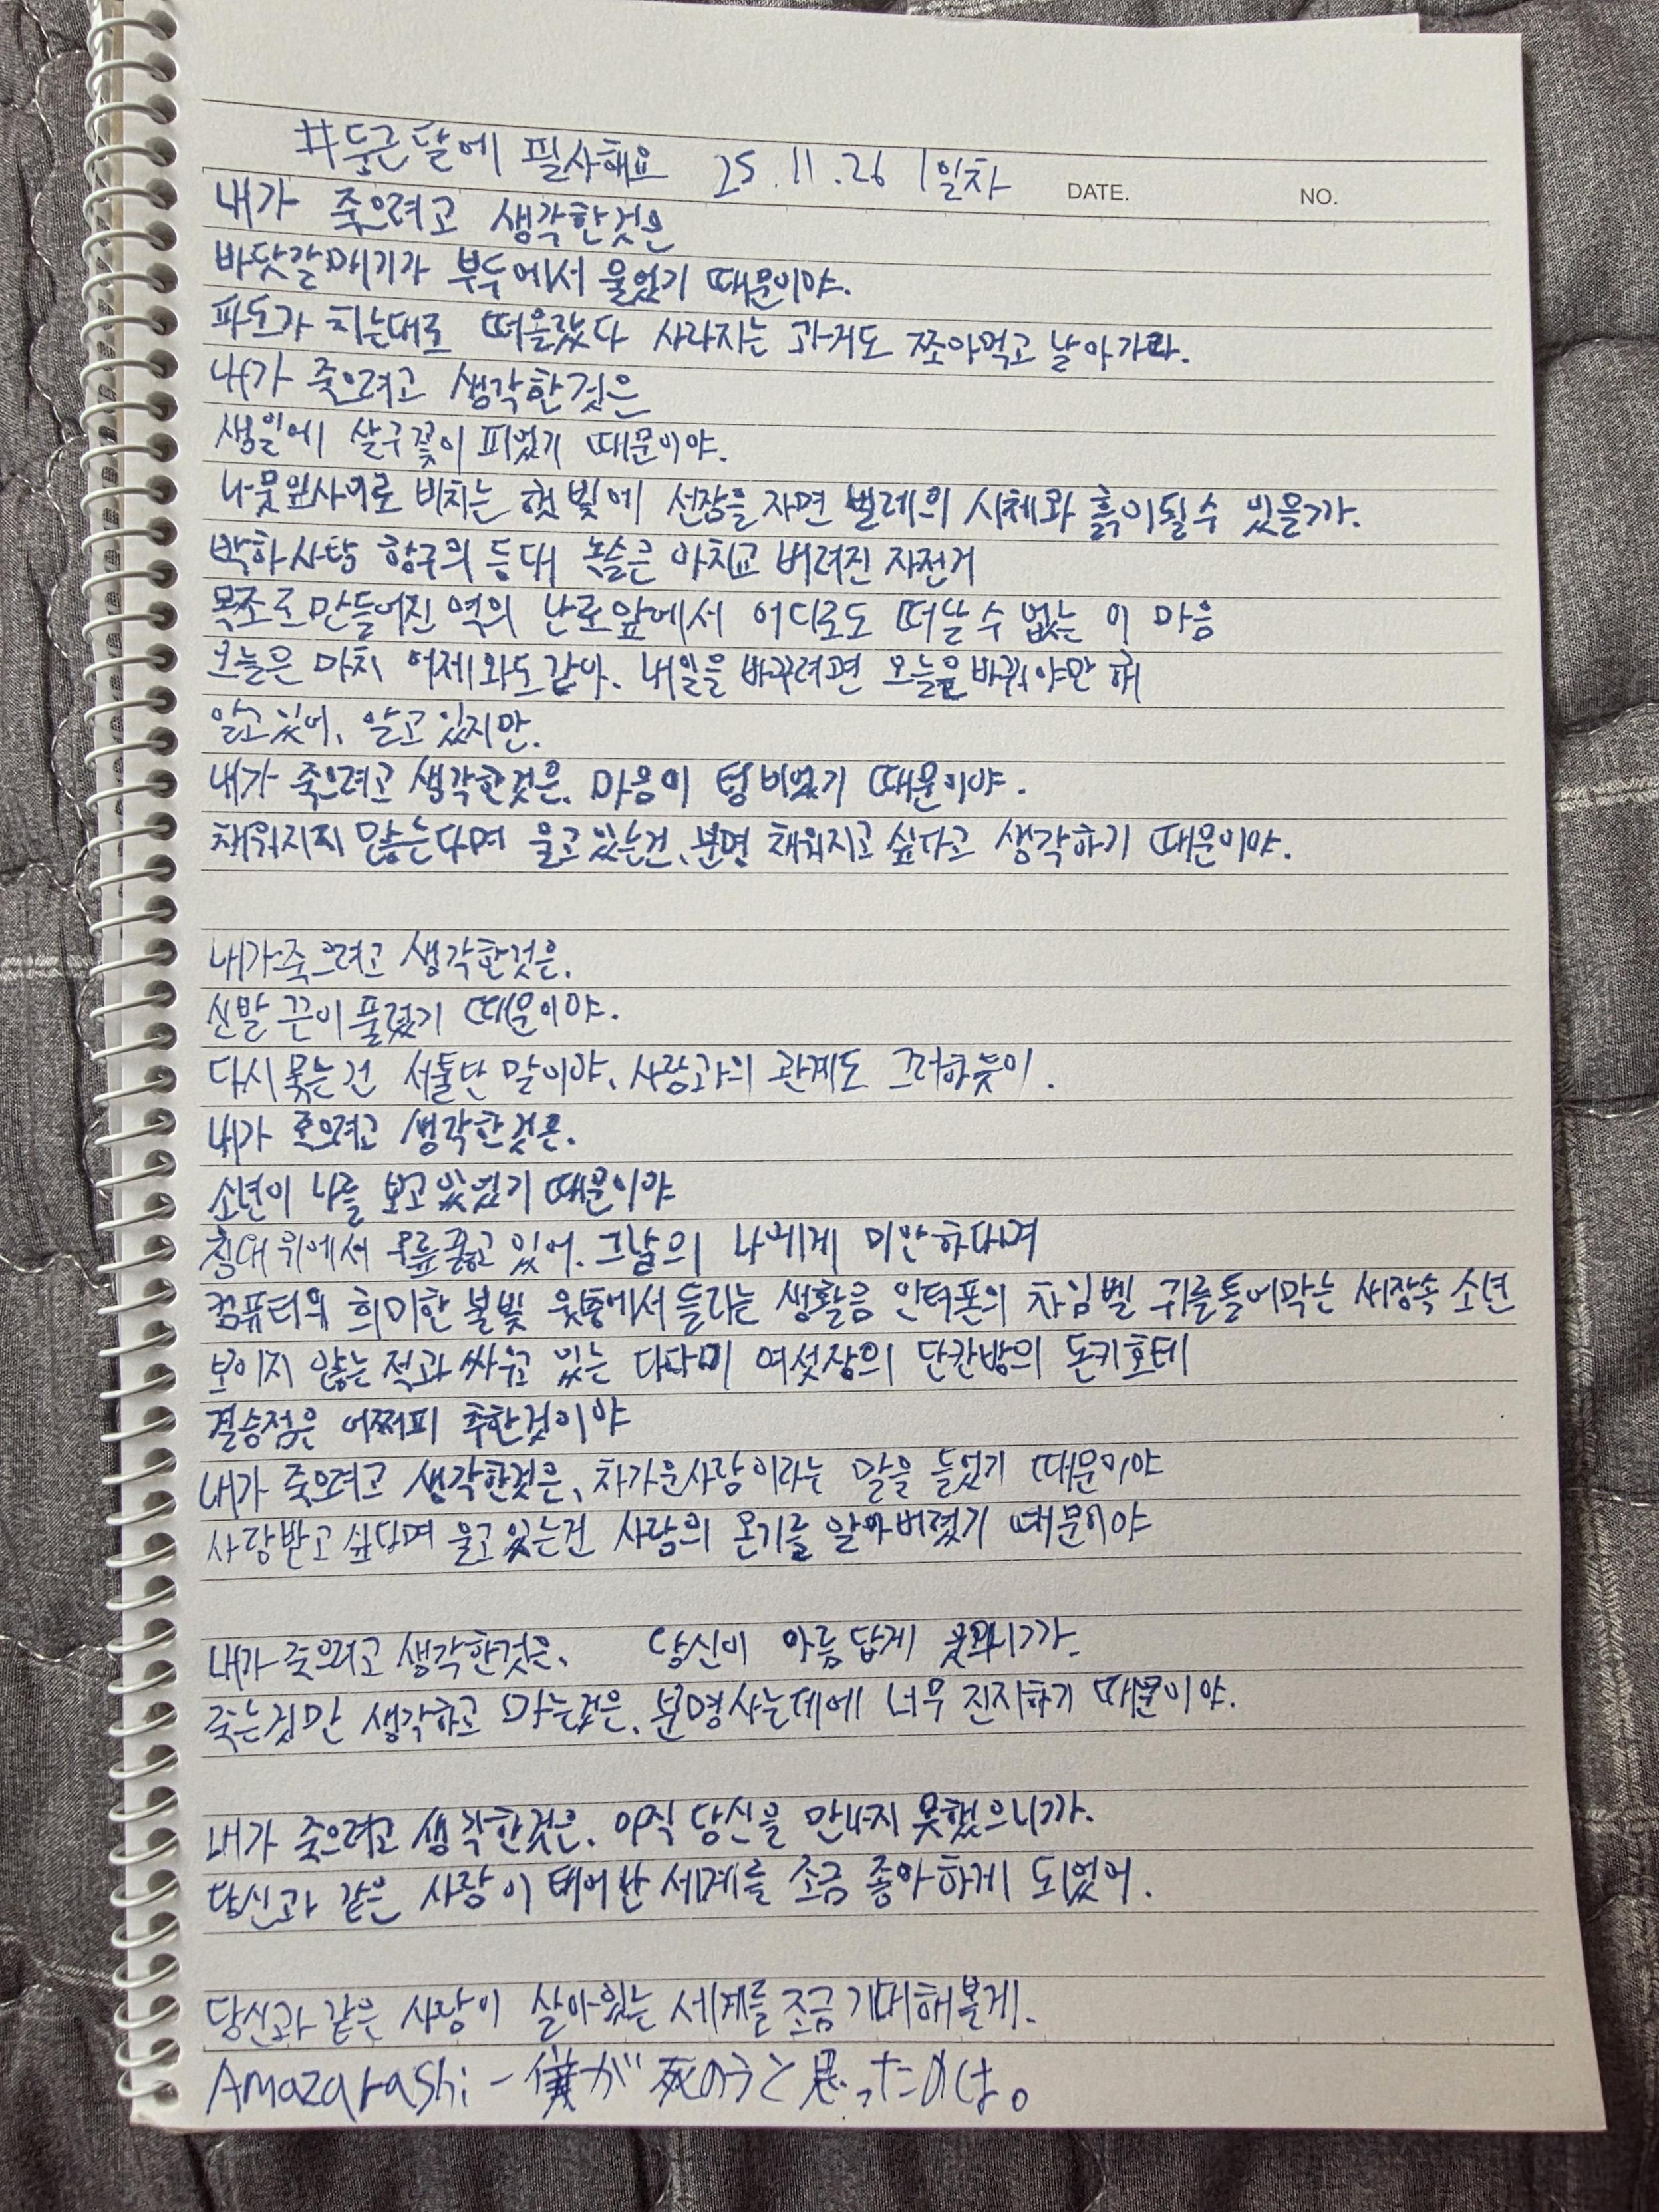 #둥근달에 필사해요 25.11.26 1일차
DATE. NO.
내가 죽으려고 생각한것은
바닷갈매기가 부두에서 울었기 때문이야.
파도가 치는대로 떠올랐다 사라지는 과거도 쪼아먹고 날아가라.
내가 죽으려고 생각한것은
생일에 살구꽃이 피었기 때문이야.
나뭇잎사이로 비치는 햇빛에 선잠을 자면 벌레의 시체와 흙이될수 있을까.
박하사탕 항구의 등대 녹슬은 아치교 버려진 자전거
목조로만들어진 역의 난로앞에서 어디로도 떠날수 없는 이 마음
오늘은 마치 어제와도같아. 내일을 바꾸려면 오늘을바꿔야만 해
알고있어, 알고있지만.
내가 죽으려고 생각한것은. 마음이 텅비었기 때문이야.
채워지지 않는다며 울고있는건, 분명 채워지고싶다고 생각하기 때문이야.
내가죽으려고 생각한것은.
신발끈이풀렸기 때문이야.
다시묶는건 서툴단 말이야, 사람과의 관계도 그러하듯이.
내가 죽으려고 생각한것은.
소년이 나를 보고있었기 때문이야
침대위에서 무릎꿇고 있어. 그날의 나에게 미안하다며
컴퓨터의 희미한 불빛 윗층에서들리는 생활음 인터폰의 차임벨 귀를틀어막는 새장속 소년
보이지 않는 적과싸우고 있는 다다미 여섯장의 단칸방의 돈키호테
결승점은 어쩌피 추한것이야
내가 죽으려고 생각한것은, 차가운사람이라는 말을 들었기 때문이야
사랑받고싶다며 울고있는건 사람의 온기를 알아버렸기 때문이야
내가죽으려고생각한것은. 당신이 아름답게 웃으니까.
죽는것만 생각하고 마는것은, 분명사는데에 너무 진지하기 때문이야.
내가 죽으려고 생각한것은. 아직 당신을 만나지 못했으니까.
당신과 같은 사람이 태어난세계를 조금 좋아하게 되었어.
당신과 같은 사람이 살아있는 세계를 조금기대해볼게.
Amazarashi - 僕が死のうと思ったのは。